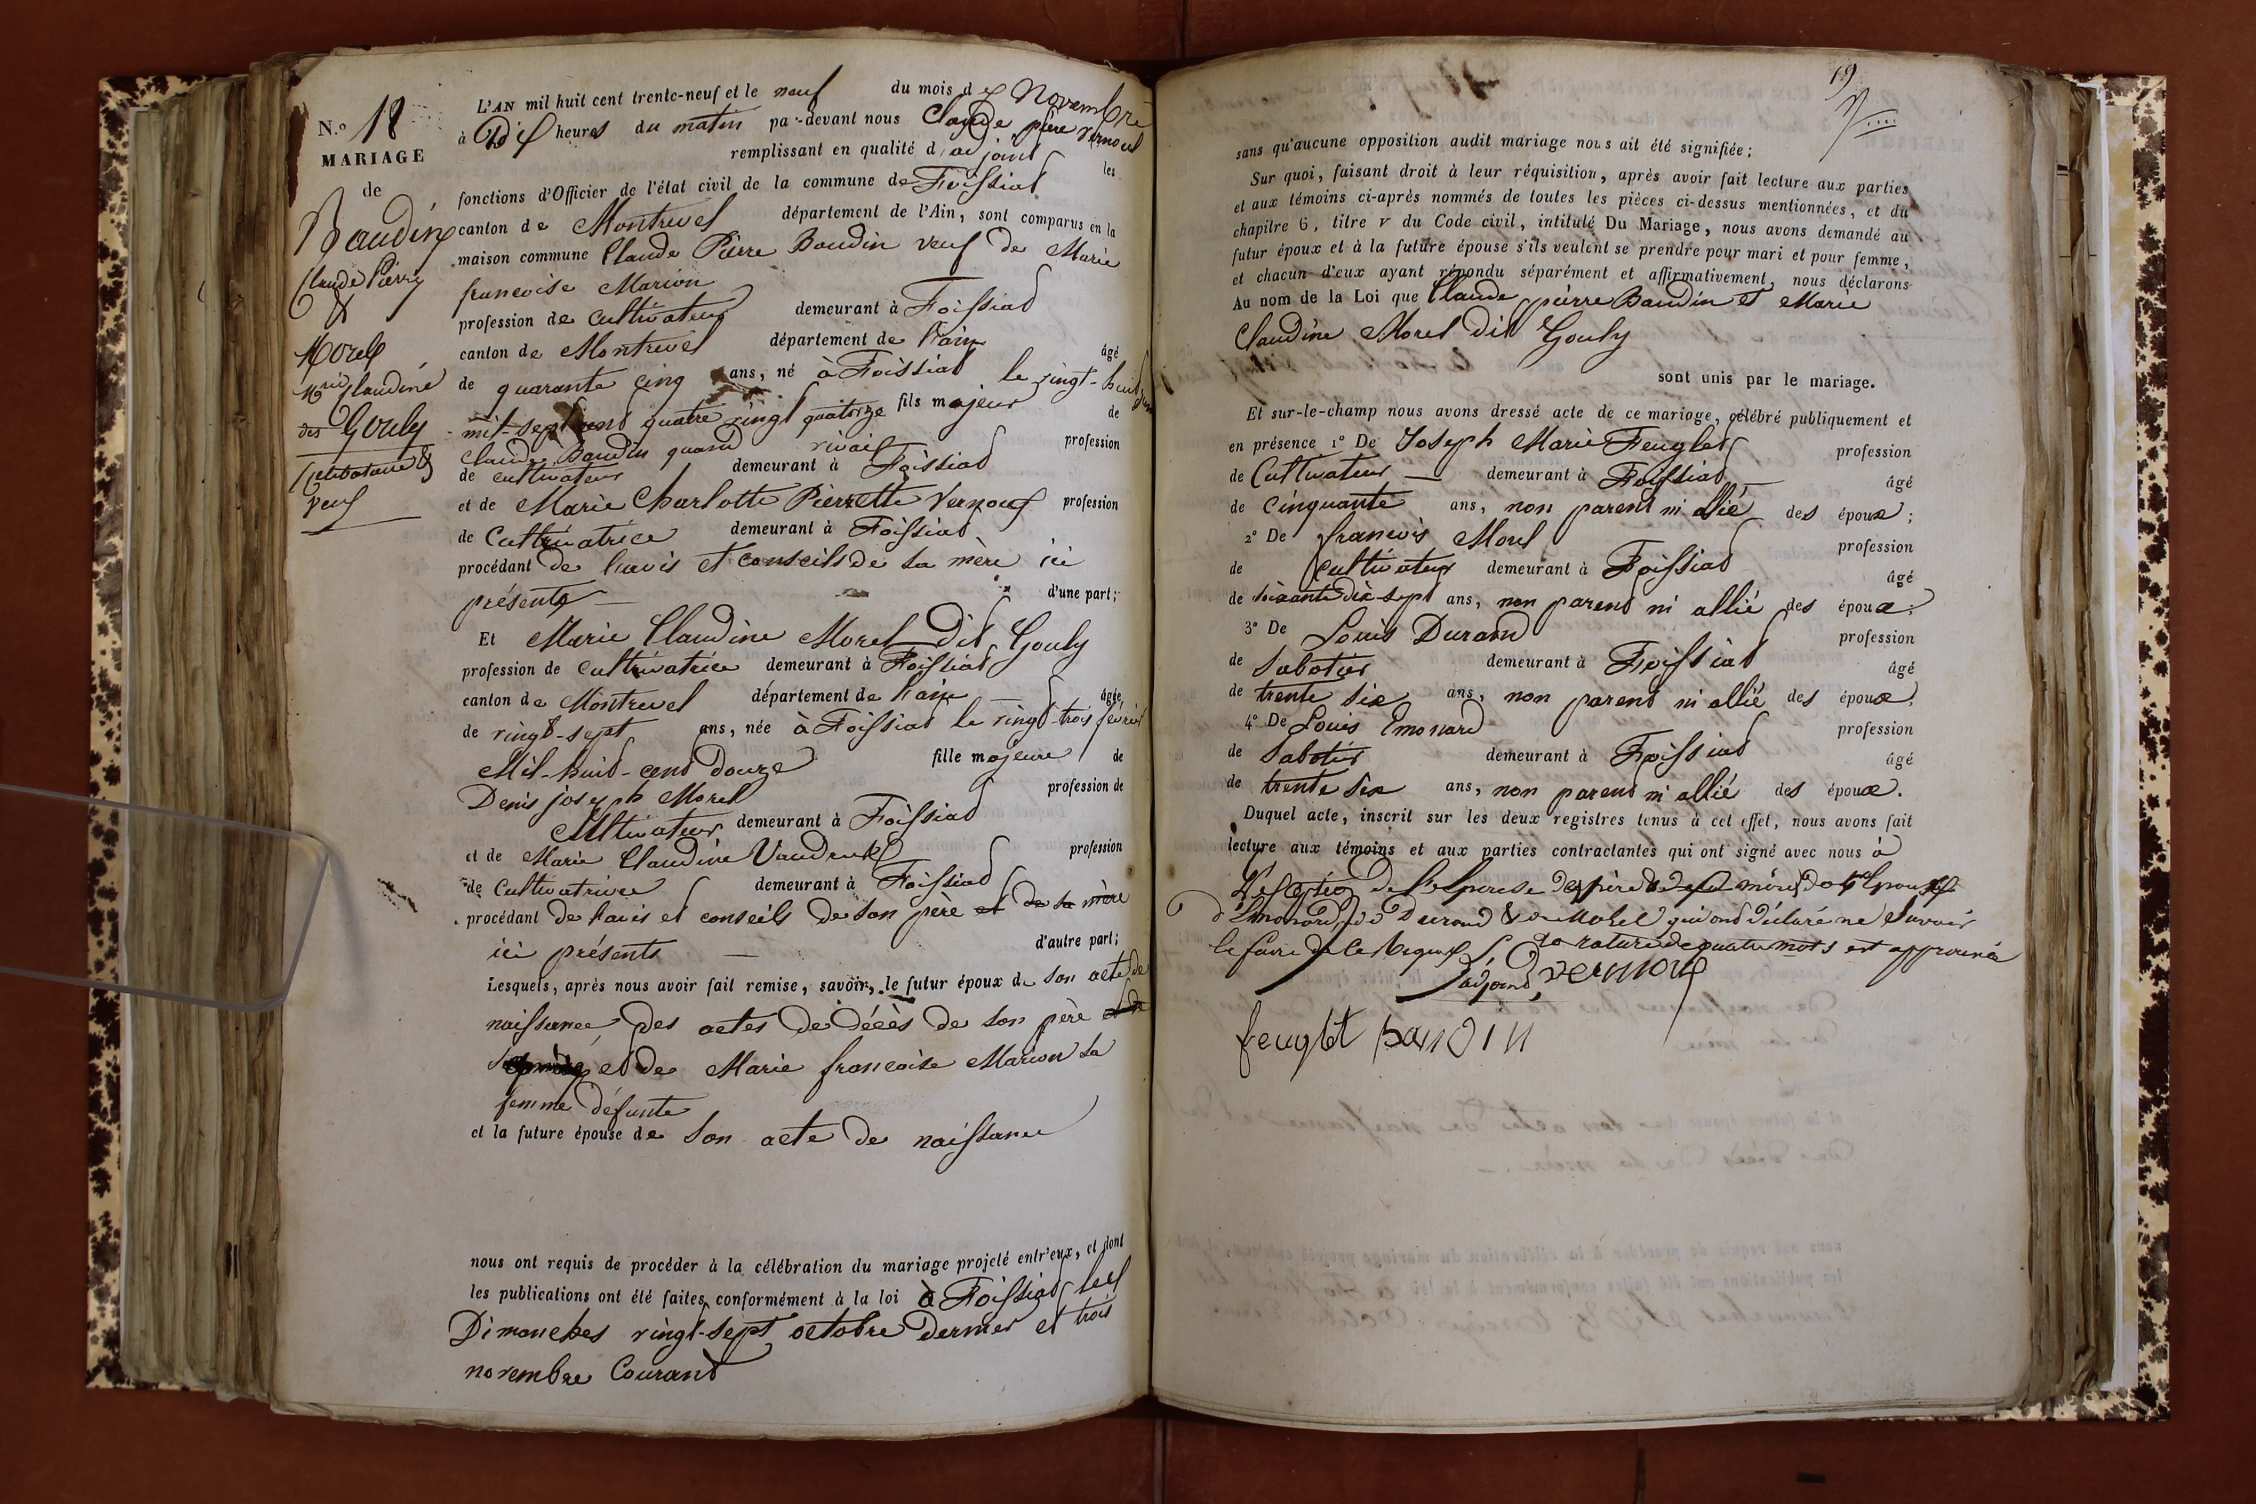 N.o 18
MARIAGE
de
Baudin
Claude Pierre
&
Morel
Mrie Claudine
dit Gouly
Celibataire &
veuf
L'AN mil huit cent trente-neuf et le neuf du mois de Novembre
à dix heures du matin par-devant nous Claude pierre Vernoux
remplissant en qualité d'adjoint les
fonctions d'Officier de l'état civil de la commune de Foissiat
canton de Montrevel département de l'Ain, sont comparus en la
maison commune Claude Pierre Baudin veuf de Marie
francoise Marion
profession de cultivateur demeurant à Foissiat
canton de Montrevel département de l'ain âgé
de quarante cinq ans, né à Foissiat le vingt-huit
mil-sept cent quatre vingt quatorze fils majeur de
Claude Baudin quand vivait profession
de cultivateur demeurant à Foissiat
et de Marie Charlotte Pierrette Vernoux profession
de Cultivatrice demeurant à Foissiat
procédant de l'avis et conseils de sa mère ici
présente d'une part;
Et Marie Claudine Morel dit Gouly
profession de cultivatrice demeurant à Foissiat
canton de Montrevel département de l'ain âgée
de vingt-sept ans, née à Foissiat le vingt-trois février
Mil-huit-cent douze fille majeure de
Denis joseph Morel profession de
Cultivateur demeurant à Foissiat
et de Marie Claudine profession
de Cultivatrice demeurant à Foissiat
procédant de l'avis et conseils de son père et de sa mère
ici présents d'autre part;
Lesquels, après nous avoir fait remise, savoir, le futur époux de son acte de
naissance, des actes de décès de son père et de
sa mère et de Marie francoise Marion sa
femme défunte
et la future épouse de son acte de naissance
nous ont requis de procéder à la célébration du mariage projeté entr'eux, et dont
les publications ont été faites conformément à la loi à Foissiat les
Dimanches vingt-sept octobre dernier et trois
novembre Courant
19
sans qu'aucune opposition audit mariage nous ait été signifiée;
Sur quoi, faisant droit à leur réquisition, après avoir fait lecture aux parties
et aux témoins ci-après nommés de toutes les pièces ci-dessus mentionnées, et du
chapitre 6, titre v du Code civil, intitulé Du Mariage, nous avons demandé au
futur époux et à la future épouse s'ils veulent se prendre pour mari et pour femme,
et chacun d'eux ayant répondu séparément et affirmativement, nous déclarons
Au nom de la Loi que Claude pierre Baudin et Marie
Claudine Morel dit Gouly
sont unis par le mariage.
Et sur-le-champ nous avons dressé acte de ce mariage, célébré publiquement et
en présence 1° De Joseph Marie Feuglet profession
de Cultivateur demeurant à Foissiat âgé
de Cinquante ans, non parent ni allié des époux;
2° De francois Morel profession
de Cultivateur demeurant à Foissiat âgé
de soixante dix-sept ans, non parent ni allié des époux;
3° De Louis Durand profession
de Sabotier demeurant à Foissiat âgé
de trente six ans, non parent ni allié des époux;
4° De Louis Emonard profession
de Sabotier demeurant à Foissiat âgé
de trente six ans, non parent ni allié des époux.
Duquel acte, inscrit sur les deux registres tenus à cet effet, nous avons fait
lecture aux témoins et aux parties contractantes qui ont signé avec nous à
de l'Epouse des père & mère
d'Emonard, de Durand & de Morel qui ont déclaré ne savoir
le faire de ce requis la rature de quatre mots est approuvée
l'adjoint, vernoux
feuglet baudin